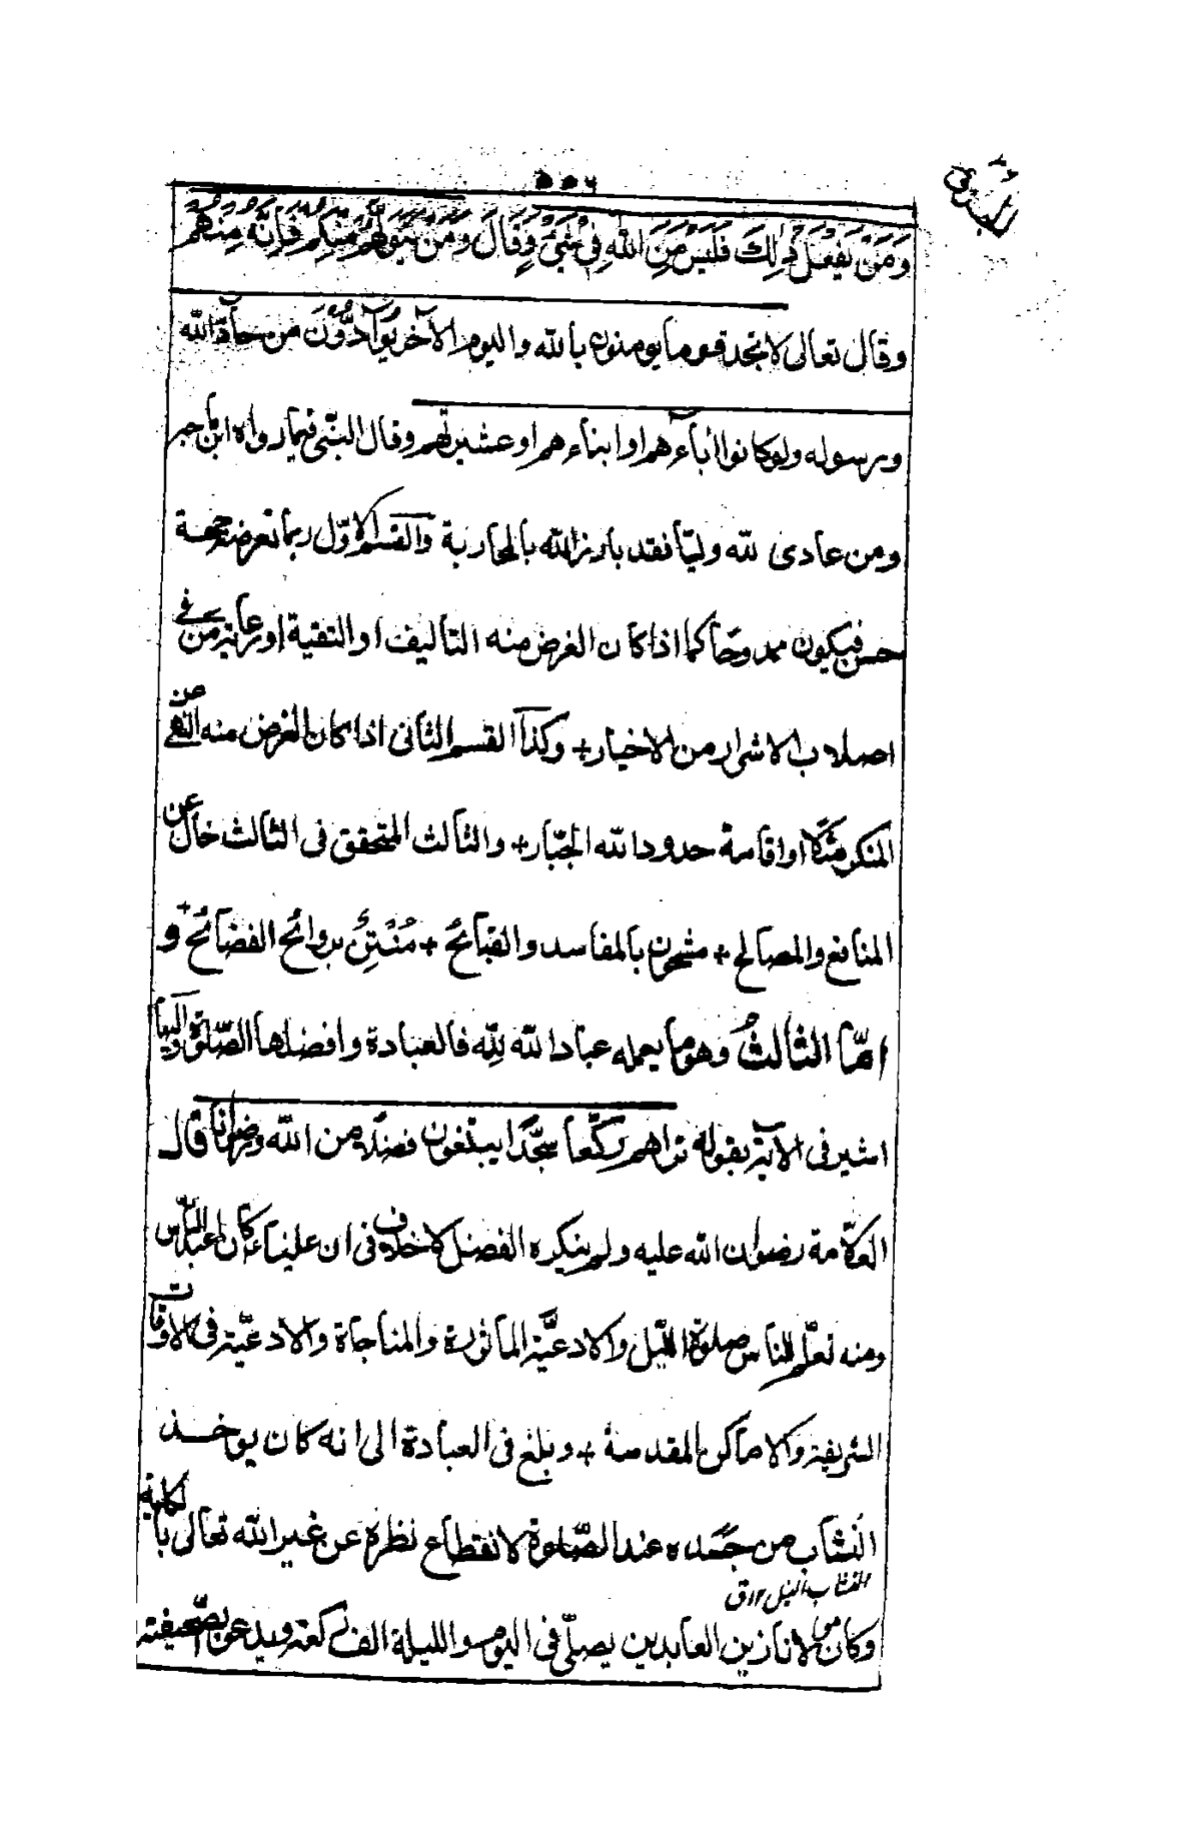 ٥٥٦
وَمَنْ يَفْعَلْ ذٰلِكَ فَلَيْسَ مِنَ اللّٰهِ فِىْ شَىْءٍ وَقَالَ وَمَنْ يَتَوَلَّهُمْ مِنْكُمْ فَاِنَّهٗ مِنْهُمْ
وقال تعالى لا تجد قوما يومنون بالله واليوم الآخر يُوَآدُّوْنَ من حادّ الله
ورسوله ولو كانوا اٰبآءهم او ابناءهم او عشيرتهم وقال النبّى فيما رواه ابن حجر
ومن عادى لله وليّا فقد بارز الله بالمحاربة والقسم الاوّل ربما تعرضه جهة
حسن فيكون ممدوحًا كما اذا كان الغرض منه التاليف او التقية او رعاية من فى
اصلاب الاشرار من الاخيار + وكذا القسم الثانى اذا كان الغرض منه النهى عن
المنكر مثلًا او اقامة حدود الله الجبّار + والثالث المتحقق فى الثالث خال عن
المنافع والمصالح + مشحون بالمفاسد والقبائح + مُنْتِنٌ بروائح الفضائح + و
امّا الثالثُ وهو ما يعمله عباد الله لِلّٰه فالعبادة وافضلها الصّلوة واليها
اشير فى الآية بقوله تراهم ركّعا سجّدا يبتغون فضلا من الله ورضوانا قال
العلّامة رضوان الله عليه ولم ينكره الفضل لا خلاف فى ان عليا ع كان اعبد النّاس
ومنه تعلّم الناس صلوة اللّيل والادعيّة الماثورة والمناجاة والادعيّة فى الاوقات
الشريفة والاماكن المقدسة + وبلغ فى العبادة الى انه كان يوخذ
النشاب من جسده عند الصّلوة لانقطاع نظره عن غير الله تعالى بالكلية
النشاب النبل ١٢ ق
وكان مولانا زين العابدين يصلّى فى اليوم والليلة الف ركعة ويدعو بصّحيفته